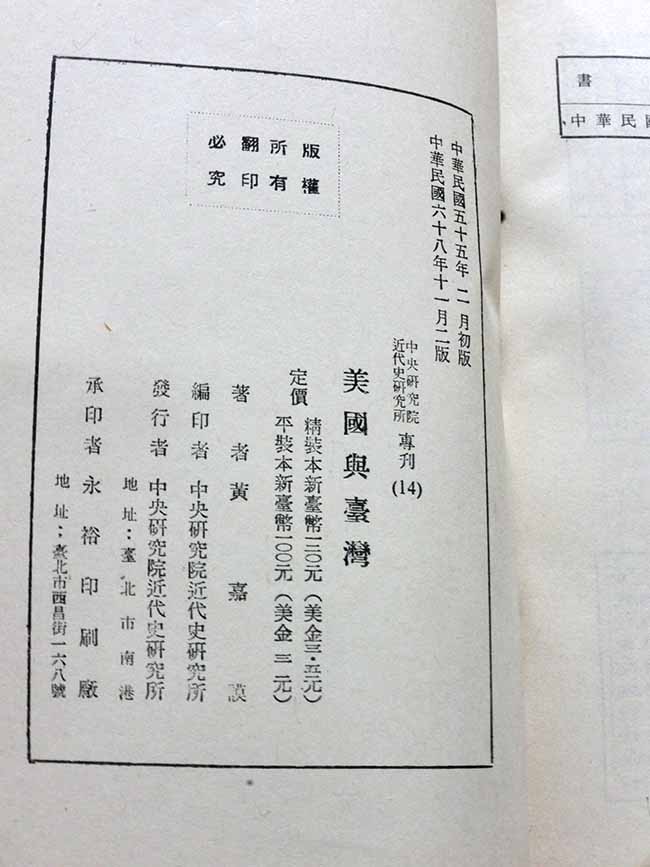 中華民國五十五年二月初版
中華民國六十八年十一月二版
中央研究院
近代史研究所 專刊 (14)
美國與臺灣
定價 精裝本新臺幣一三〇元（美金三·五元）
平裝本新臺幣一〇〇元（美金 三 元）
著者 黃嘉謨
編印者 中央研究院近代史研究所
發行者 中央研究院近代史研究所
地址：臺北市南港
承印者 永裕印刷廠
地址：臺北市西昌街一六八號
版權
所有
翻印
必究
書
中華民國